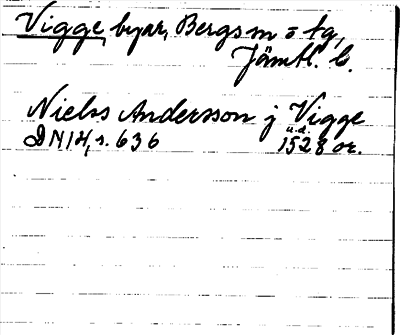 Vigge, byar, Bergs sn o tg,
Jämtl. l.
Niels Andersson j Vigge
DN 14, s. 636 u.d. 1528 or.